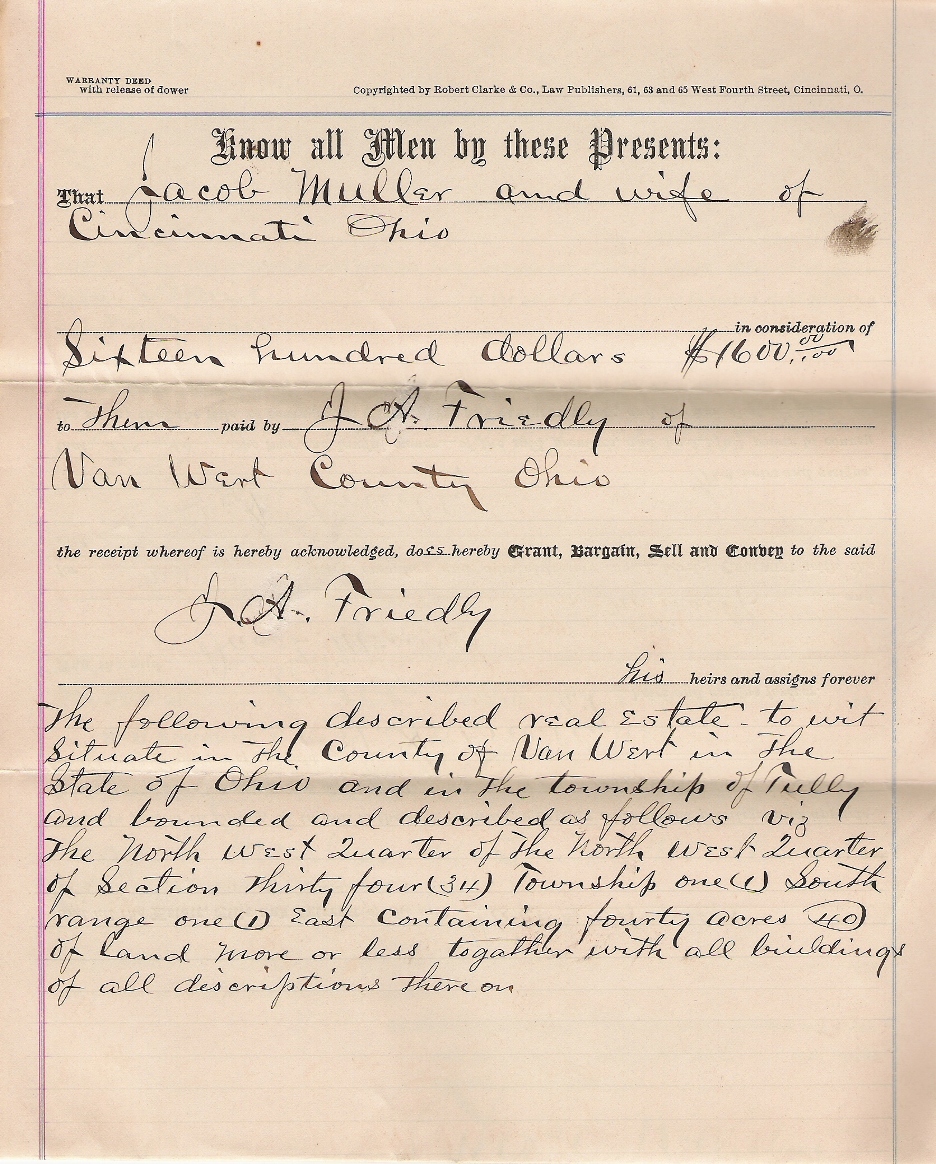 WARRANTY DEED
with release of dower
Copyrighted by Robert Clarke & Co., Law Publishers, 61, 63 and 65 West Fourth Street, Cincinnati, O.
Know all Men by these Presents:
That Jacob Muller and wife of
Cincinnati Ohio
in consideration of
Sixteen hundred dollars $1600.00/.00
to Them paid by J A. Friedly of
Van Wert County Ohio
the receipt whereof is hereby acknowledged, does hereby Grant, Bargain, Sell and Convey to the said
J. A. Friedly
his heirs and assigns forever
The following described real Estate - to wit
Situate in The County of Van Wert in The
State of Ohio and in The township of Tully
and bounded and described as follows viz
The North West Quarter of The North West Quarter
of Section Thirty four (34) Township one (1) South
range one (1) East Containing fourty acres (40)
of Land more or less together with all buildings
of all descriptions There on